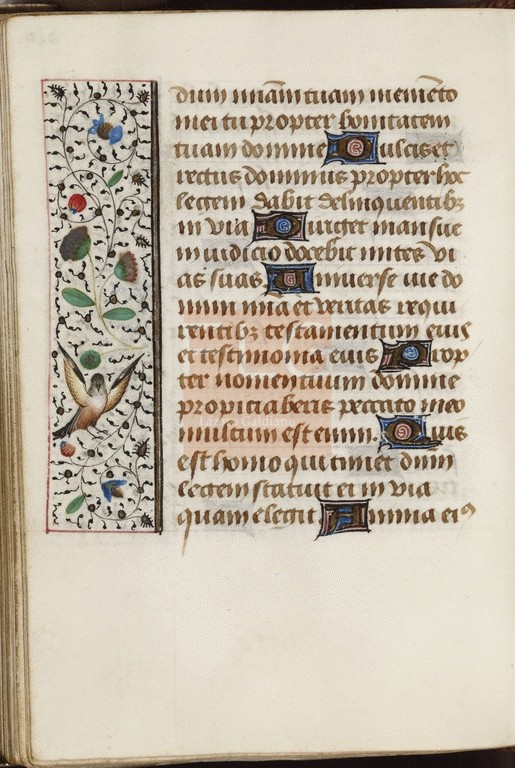 dum mīam tuam memēto
mei tu propter bonitatem
tuam domine Dulcis et
rectus dominus propter hoc
legem dabit delinquentibz
in via Diriget mansue
in iudicio docebit mites vi
as suas. Uniuerse uie do
mini mīa et veritas requi
rentibz testamentum eius
et testimonia eius Prop
ter nomen tuum domine
propiciaberis peccato meo
multum est enim. Quis
est homo qui timet dnm
legem statuit ei in via
quam elegit Anima eiꝰ
Lázaro Galdiano